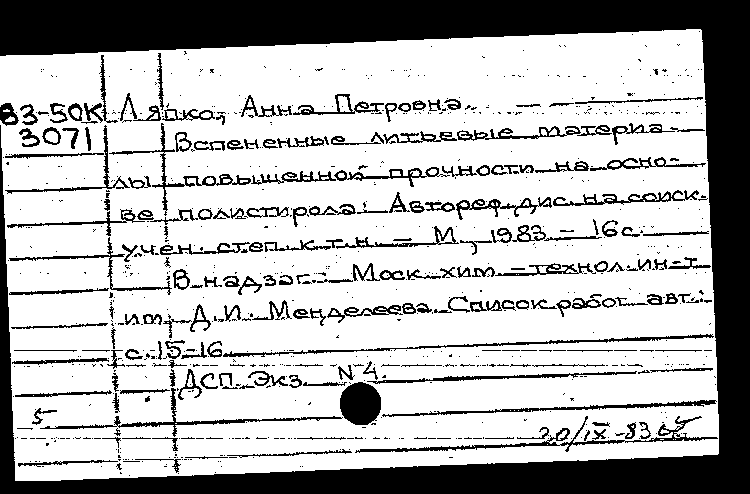 83-50К Ляпко, Анна Петровна.
3071 Вспененные литьевые материа-
лы повышенной прочности на осно-
ве полистирола: Автореф. дис. на соиск.
учен. степ. к.т.н. – М., 1983. – 16 с.
В надзаг.: Моск. хим.-технол. ин-т
им. Д.И. Менделеева. Список работ авт.:
с. 15-16.
ДСП. Экз. N 4.
5
20/IX-83